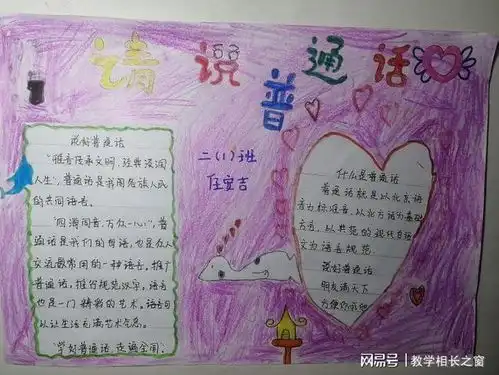 请说普通话
说好普通话
"雅言传承文明,经典浸润
人生",普通话是我国各族人民
的共同语言。
"四海同音,万众一心",普
通话是我们的母语,也是众人
交流最常用的一种语言。推广
普通话,推行规范汉字。语言
也是一门精彩的艺术。语言可
以让生活充满艺术气息。
学好普通话,走遍全国。
二(1)班
任宣吉
什么是普通话
普通话就是以北京语
音为标准音,以北方话为基础
方言,以典范的现代白话
文为语言规范
说好普通话
朋友满天下
方便你我他
网易号 | 教学相长之窗